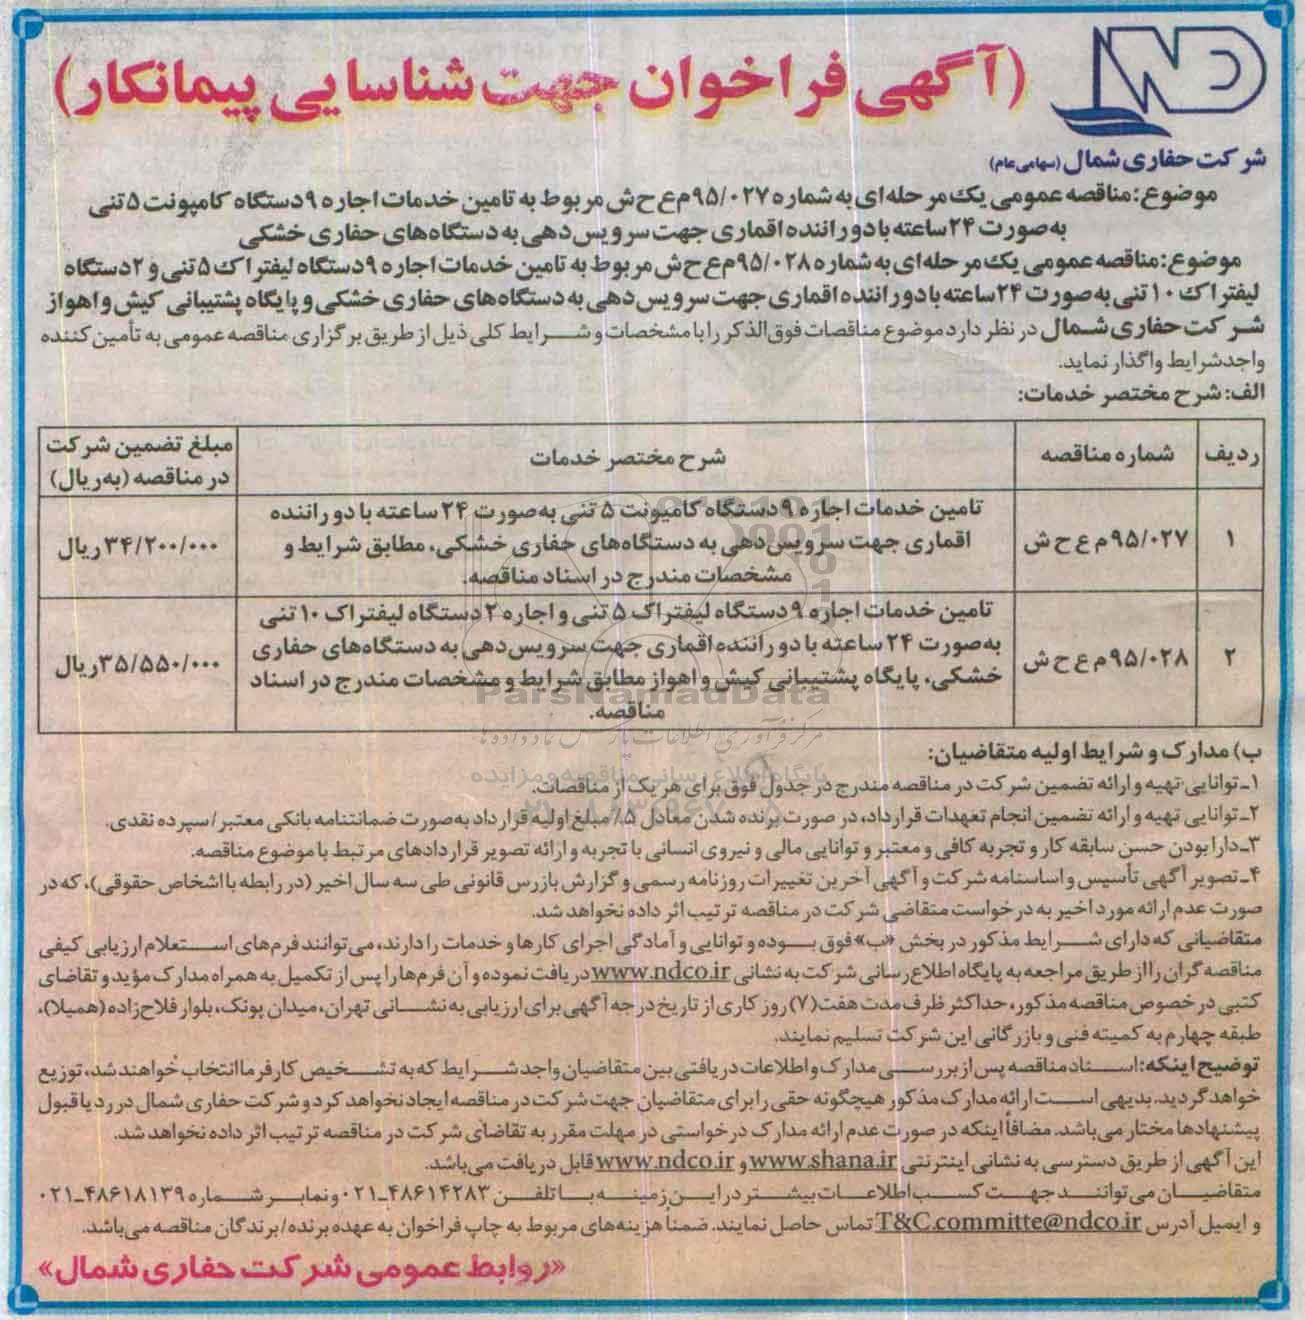 (آگهی فراخوان جهت شناسایی پیمانکار)
NDC
شرکت حفاری شمال (سهامی عام)
موضوع: مناقصه عمومی یک مرحله ای به شماره ۹۵/۰۲۷م ع ح ش مربوط به تامین خدمات اجاره ۹دستگاه کامیونت ۵ تنی
به صورت ۲۴ساعته با دو راننده اقماری جهت سرویس دهی به دستگاه های حفاری خشکی
موضوع: مناقصه عمومی یک مرحله ای به شماره ۹۵/۰۲۸م ع ح ش مربوط به تامین خدمات اجاره ۹دستگاه لیفتراک ۵ تنی و ۲دستگاه
لیفتراک ۱۰ تنی به صورت ۲۴ساعته با دو راننده اقماری جهت سرویس دهی به دستگاه های حفاری خشکی و پایگاه پشتیبانی کیش و اهواز
شرکت حفاری شمال در نظر دارد موضوع مناقصات فوق الذکر را با مشخصات و شرایط کلی ذیل از طریق برگزاری مناقصه عمومی به تأمین کننده
واجد شرایط واگذار نماید.
الف: شرح مختصر خدمات:
ردیف شماره مناقصه شرح مختصر خدمات مبلغ تضمین شرکت
در مناقصه (به ریال)
۱ ۹۵/۰۲۷م ع ح ش تامین خدمات اجاره ۹ دستگاه کامیونت ۵ تنی به صورت ۲۴ ساعته با دو راننده
اقماری جهت سرویس دهی به دستگاه های حفاری خشکی، مطابق شرایط و
مشخصات مندرج در اسناد مناقصه.
۳۴/۲۰۰/۰۰۰ ریال
۲ ۹۵/۰۲۸م ع ح ش تامین خدمات اجاره ۹ دستگاه لیفتراک ۵ تنی و اجاره ۲ دستگاه لیفتراک ۱۰ تنی
به صورت ۲۴ ساعته با دو راننده اقماری جهت سرویس دهی به دستگاه های حفاری
خشکی، پایگاه پشتیبانی کیش و اهواز مطابق شرایط و مشخصات مندرج در اسناد
مناقصه.
۳۵/۵۵۰/۰۰۰ ریال
ParsNamadData
مرکز فرآوری اطلاعات پارس نماد داده ها
پایگاه اطلاع رسانی مناقصه و مزایده
ب) مدارک و شرایط اولیه متقاضیان:
۱ـ توانایی تهیه و ارائه تضمین شرکت در مناقصه مندرج در جدول فوق برای هر یک از مناقصات.
۲ـ توانایی تهیه و ارائه تضمین انجام تعهدات قرارداد، در صورت برنده شدن معادل ۵٪ مبلغ اولیه قرارداد به صورت ضمانتنامه بانکی معتبر/ سپرده نقدی.
۳ـ دارا بودن حسن سابقه کار و تجربه کافی و معتبر و توانایی مالی و نیروی انسانی با تجربه و ارائه تصویر قراردادهای مرتبط با موضوع مناقصه.
۴ـ تصویر آگهی تأسیس و اساسنامه شرکت و آگهی آخرین تغییرات روزنامه رسمی و گزارش بازرس قانونی طی سه سال اخیر (در رابطه با اشخاص حقوقی)، که در
صورت عدم ارائه مورد اخیر به درخواست متقاضی شرکت در مناقصه ترتیب اثر داده نخواهد شد.
متقاضیانی که دارای شرایط مذکور در بخش «ب» فوق بوده و توانایی و آمادگی اجرای کارها و خدمات را دارند، می توانند فرم های استعلام ارزیابی کیفی
مناقصه گران را از طریق مراجعه به پایگاه اطلاع رسانی شرکت به نشانی www.ndco.ir دریافت نموده و آن فرم ها را پس از تکمیل به همراه مدارک مؤید و تقاضای
کتبی در خصوص مناقصه مذکور، حداکثر ظرف مدت هفت (۷) روز کاری از تاریخ درج آگهی برای ارزیابی به نشانی تهران، میدان پونک، بلوار فلاح زاده (همیلا)،
طبقه چهارم به کمیته فنی و بازرگانی این شرکت تسلیم نمایند.
توضیح اینکه: اسناد مناقصه پس از بررسی مدارک و اطلاعات دریافتی بین متقاضیان واجد شرایط که به تشخیص کارفرما انتخاب خواهند شد، توزیع
خواهد گردید. بدیهی است ارائه مدارک مذکور هیچگونه حقی را برای متقاضیان جهت شرکت در مناقصه ایجاد نخواهد کرد و شرکت حفاری شمال در رد یا قبول
پیشنهادها مختار می باشد. مضافاً اینکه در صورت عدم ارائه مدارک درخواستی در مهلت مقرر به تقاضای شرکت در مناقصه ترتیب اثر داده نخواهد شد.
این آگهی از طریق دسترسی به نشانی اینترنتی www.shana.ir و www.ndco.ir قابل دریافت می باشد.
متقاضیان می توانند جهت کسب اطلاعات بیشتر در این زمینه با تلفن ۴۸۶۱۴۲۸۳ـ۰۲۱ و نمابر شماره ۴۸۶۱۸۱۳۹ـ۰۲۱
و ایمیل آدرس T&C.committe@ndco.ir تماس حاصل نمایند. ضمناً هزینه های مربوط به چاپ فراخوان به عهده برنده/ برندگان مناقصه می باشد.
«روابط عمومی شرکت حفاری شمال»